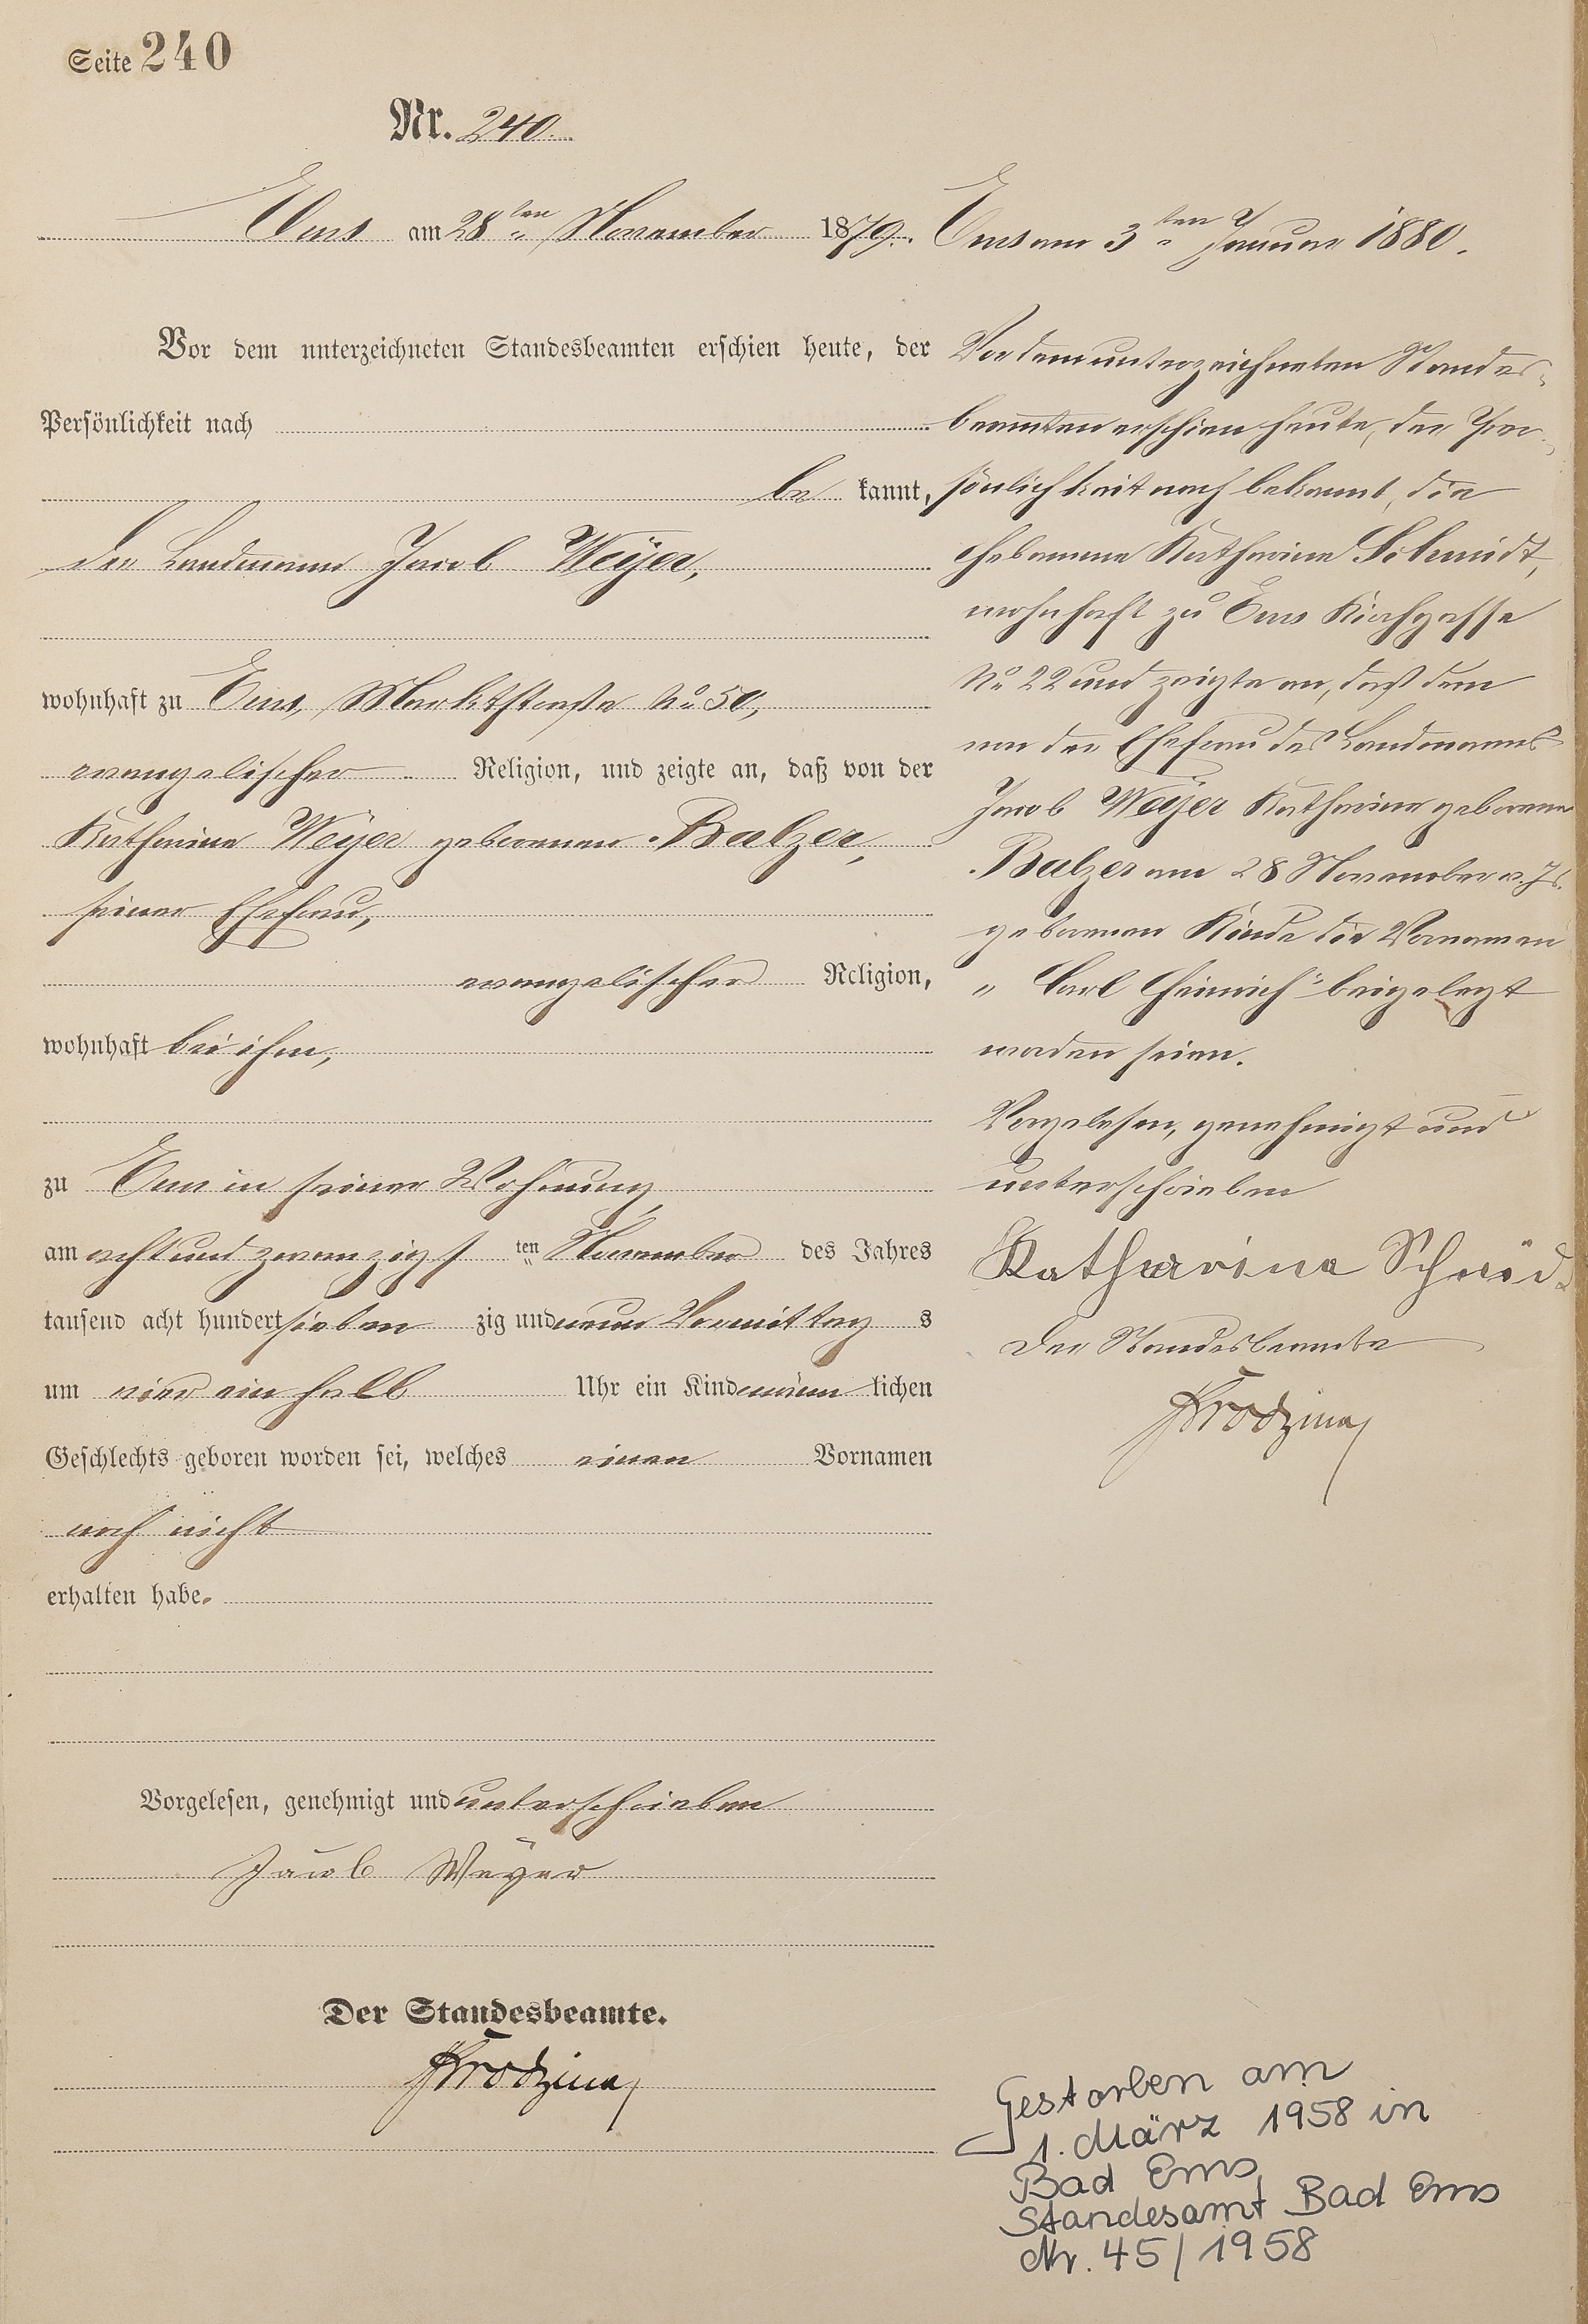 Seite 240
Nr. 240.
Ems am 28ten November 1879.
Vor dem unterzeichneten Standesbeamten erschien heute, der
Persönlichkeit nach
be kannt,
der Landmann Jacob Weÿer,
wohnhaft zu Ems, Marktstraße No 50,
evangelischer Religion, und zeigte an, daß von der
Katharina Weÿer geborenen Balzer,
seiner Ehefrau,
evangelischer Religion,
wohnhaft bei ihm,
zu Ems in seiner Wohnung,
am achtundzwanzigs ten November des Jahres
tausend acht hundert sieben zig und neun Vormittag s
um vier ein halb Uhr ein Kind männ lichen
Geschlechts geboren worden sei, welches einen Vornamen
noch nicht
erhalten habe.
Vorgelesen, genehmigt und unterschrieben
Jacob Weÿer
Der Standesbeamte.
Ems am 3ten Januar 1880.
Vor dem unterzeichneten Standes-
beamten erschien heute, der Per-
sönlichkeit nach bekannt, die
Hebamme Katharina Schmidt,
wohnhaft zu Ems Kirchgasse
No 22 und zeigte an, daß dem
von der Ehefrau des Landmanns
Jacob Weÿer Katharina geborene
Balzer am 28 November v. Js.
geborenen Kinde die Vornamen
„Carl Heinrich" beigelegt
worden seien.
Vorgelesen, genehmigt und
unterschrieben
Katharina Schmid
Der Standesbeamte
Gestorben am
1. März 1958 in
Bad Ems
Standesamt Bad Ems
Nr. 45/1958